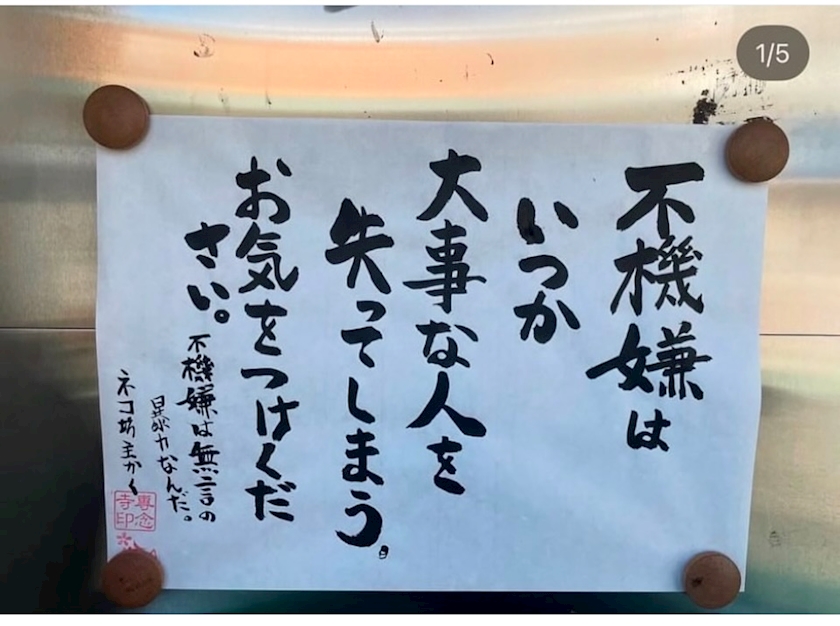 不機嫌は
いつか
大事な人を
失ってしまう。
お気をつけくだ
さい。
不機嫌は無言の
暴力なんだ。
ネコ坊主かく
専念
寺印
1/5